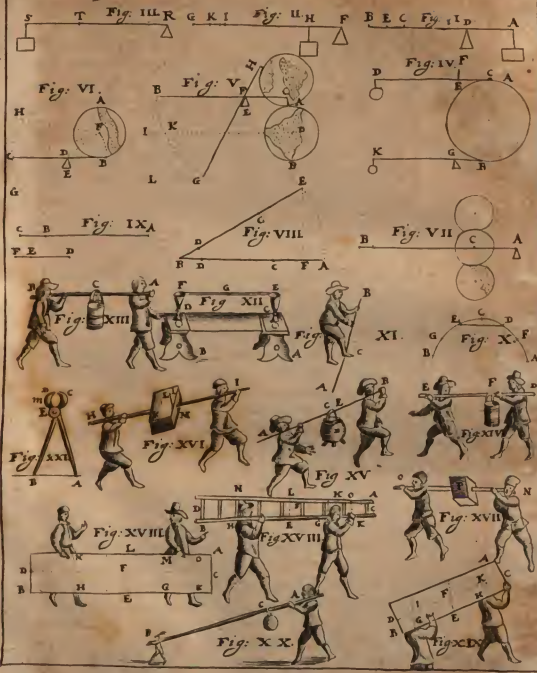 S T Fig: III. R G K I Fig: II H F B E C Fig: I D A
Fig: VI. H A F C D B E G
B Fig: V H F C E A I K D B L G
D Fig: IV F C A E K G B
C B Fig: IX A
F E D
E C D Fig: VIII B D C F A
Fig: VII B C A
B C A Fig: XIII
F G E Fig XII D C B A
Fig: XI. B C A
E C D Fig: X. G F B A
m D C E Fig: XXI B A
H L M I Fig: XVI
A C E B Fig XV
E F D Fig XIV
Fig: XVIII L A K M O D F C B H G K E
N L K O A D C B H E G K Fig XVIII
O F N Fig: XVII
B C A Fig: XX.
A C K I F H D G M E B Fig XIX